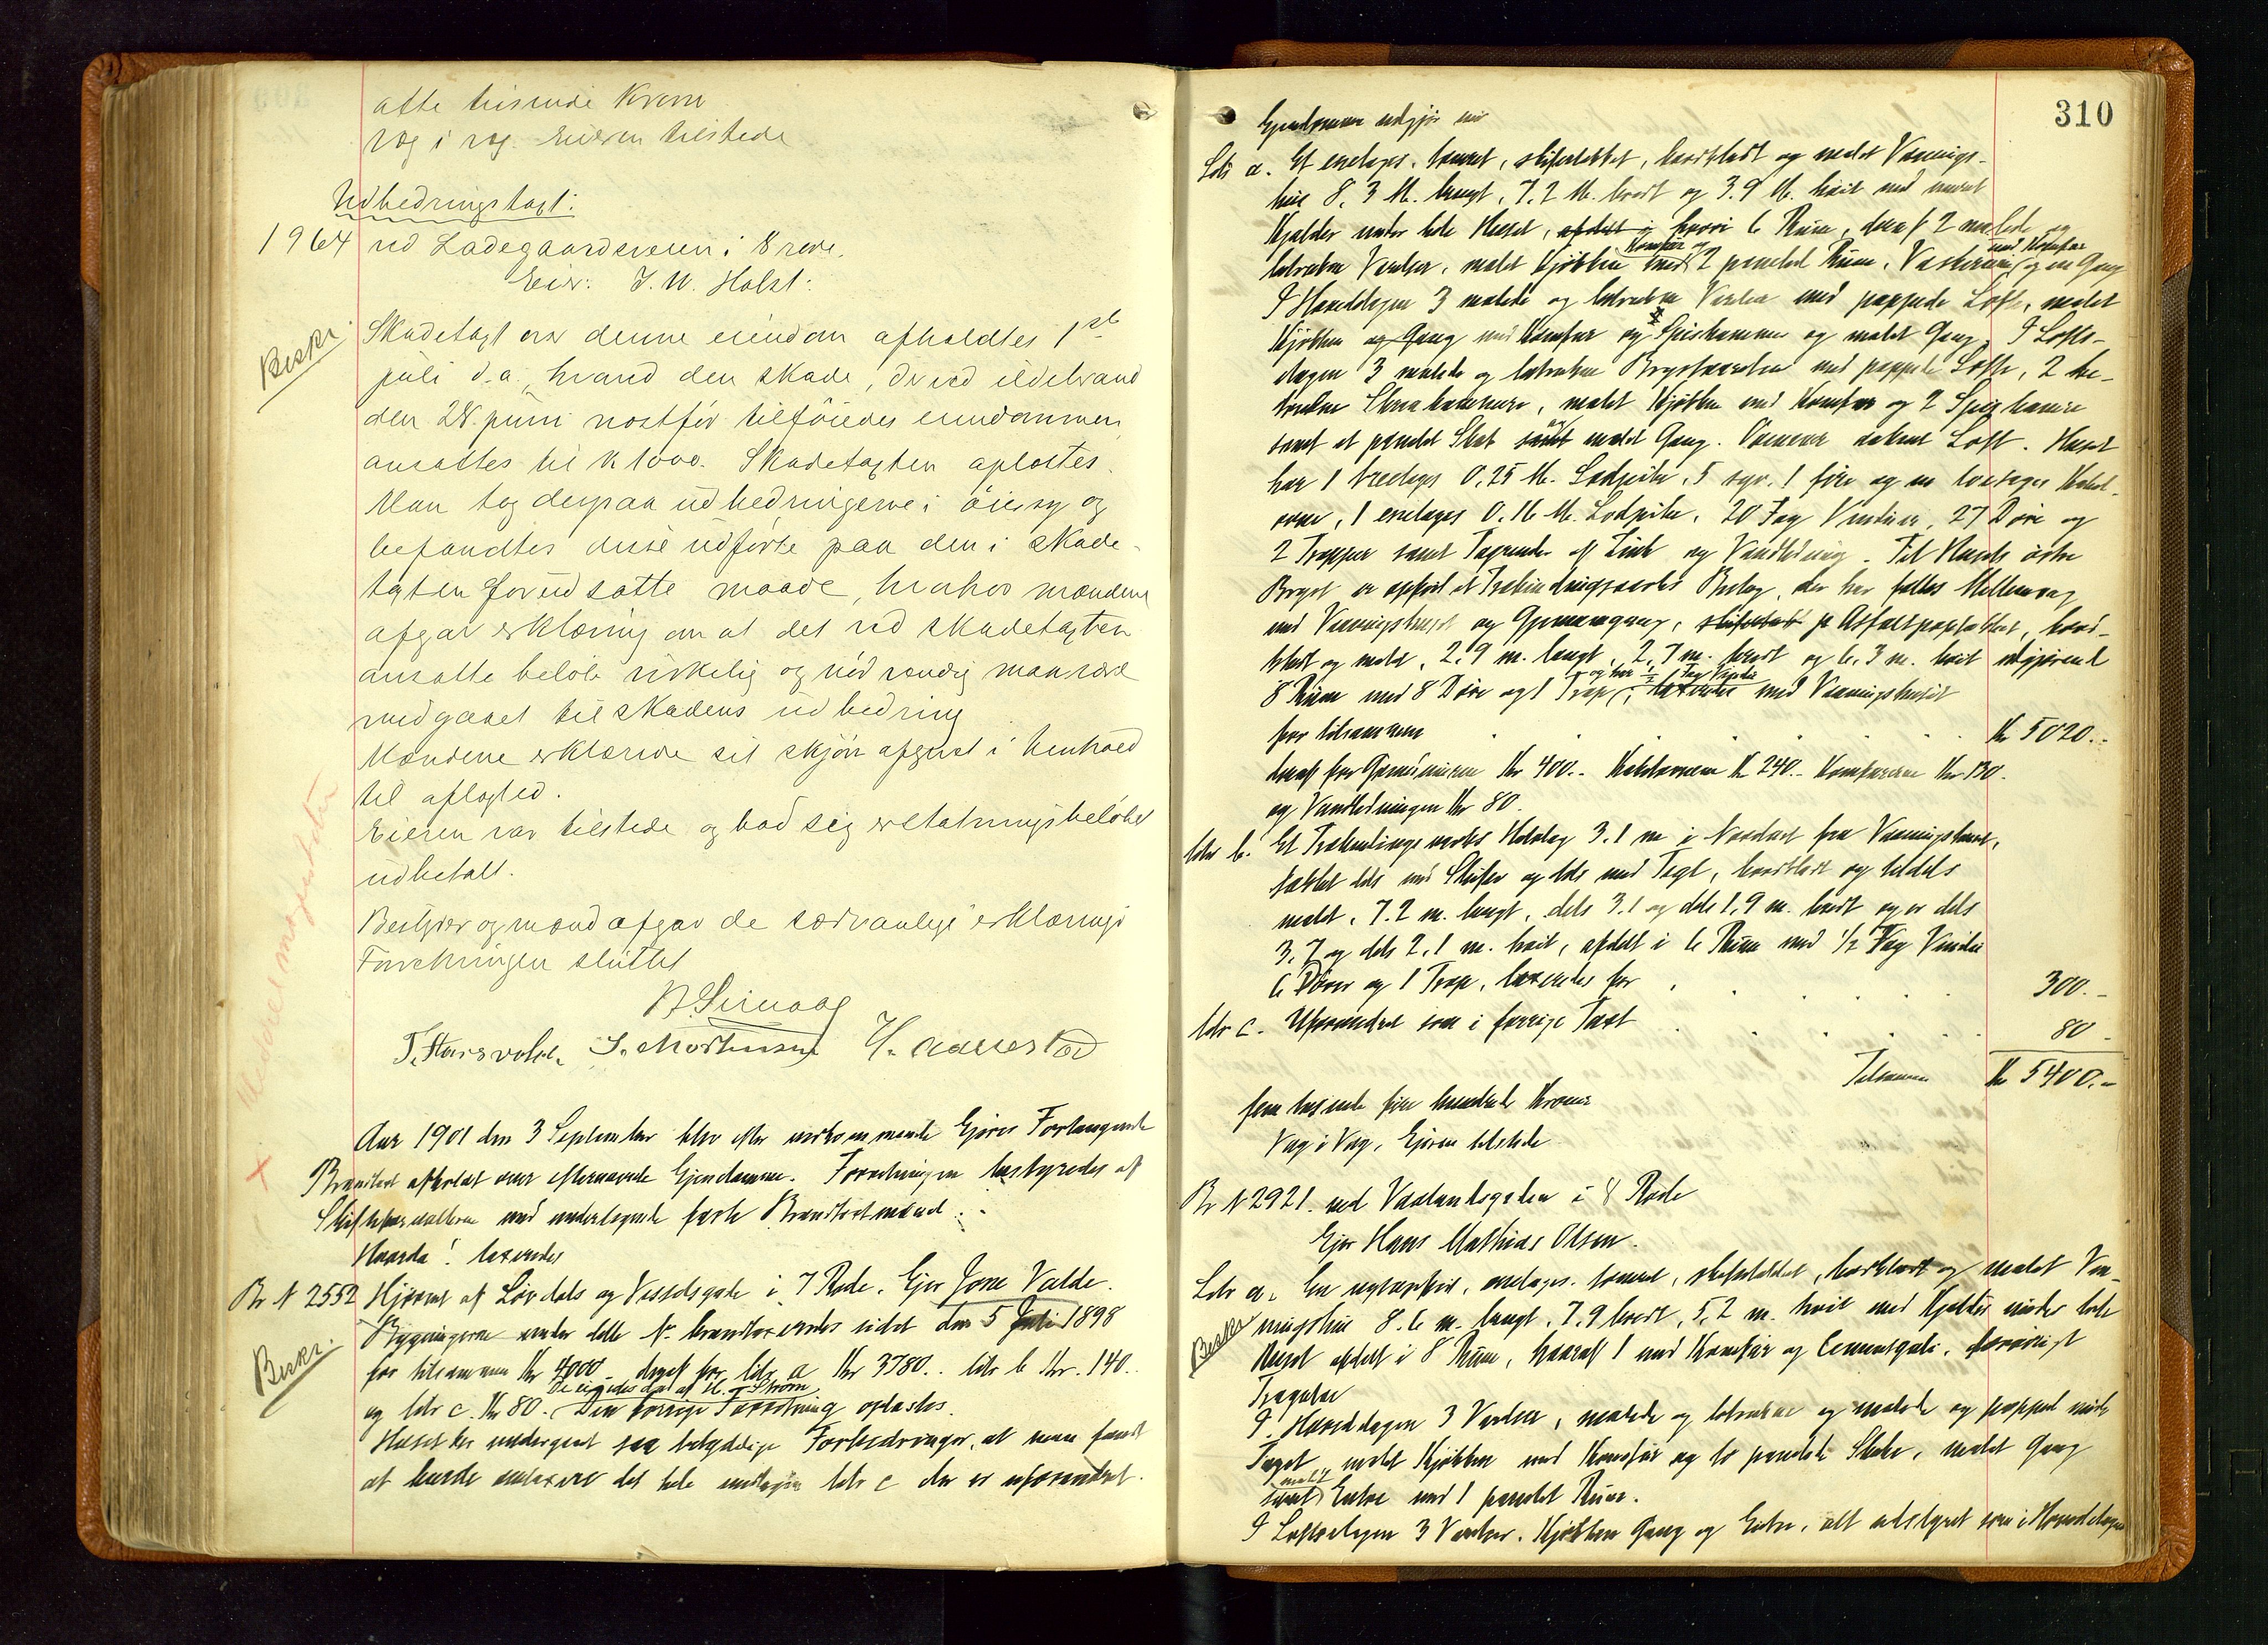 otte tusinde Kroner
væg i væg. Eieren tilstede
Udbedringstaxt:
1964 ved Ladegaardsveien i 8 rode.
Eier: J. W. Holst:
Beskr.
Skadetaxt over denne eiendom afholdtes 1ste
juli d.a., hvorved den skade, der ved ildebrand
den 28. juni næstfør tilføiedes eiendommen,
ansattes til k 1000. Skadetaxten oplæstes.
Man tog derpaa udbedringerne i øiesyn og
befandtes disse udførte paa den i skade-
taxten forudsatte maade, hvorhos mændene
afgav erklæring om at det ved skadetaxten
ansatte beløb virkelig og nødvendig maa være
medgaaet til skadens udbedring
Mændene erklærede sit skjøn afgivet i henhold
til aflagt ed.
Eieren var tilstede og bad sig erstatningsbeløbet
udbetalt.
Bestyrer og mænd afgav de sædvanlige erklæringer
Forretningen sluttet
S. Mortensen
Aar 1901 den 3 September blev efter vedkommende Ejeres Forlangende
Brandtaxt afholdt over efternævnte Ejendomme. Forretningen bestyredes af
Skifteforvalteren med undertegnede faste Brandtaxtmænd.
Hvorda! taxeredes
Br N 2552 Hjørnet af Løvdals og Vesselsgade i 7 Rode. Ejer Jone Valde.
Beskr.
Bygningerne under dette Nr brandtaxeredes sidst den 5 Juli 1898
for tilsammen Kr 4000 - deraf for litr. a Kr 3780.. litr b Kr. 140..
og litr c. Kr 80. Den forrige Forretning oplæstes.
Huset har undergaaet saa betydelige Forbedringer, at man fandt
at burde omtaxere det hele undtagen litr c der er uforandret.
310
Ejendommen udgjør nu
Litr a. Et enetages. tømret, skifertækket, bordklædt og malet Vaanings-
hus 8,3 M. langt, 7.2 M. bredt og 3.9 M. høit med muret
Kjælder under hele Huset, afdelt i hvori 6 Rum, deraf 2 malede og
betrukne Værelser, malet Kjøkken med Komfur og 2 panelede Rum, Vaskerum med Komfur og en Gang
I Hovedetagen 3 malede og betrukne Værelser med pappede Lofte, malet
Kjøkken og Gang med Komfur og Spiskammer og malet Gang. I Lofts-
etagen 3 malede og betrukne Brystværelser med pappede Lofte, 2 be-
trukne Skraakammere, malet Kjøkken med Komfur og 2 Spiskamre
samt et panelet Skab samt malet Gang. Ovenover aabent Loft. Huset
har 1 treetages 0,25 M. Lodpibe, 5 syv, 1 fire og en toetages Kakel-
ovne, 1 enetages 0.16 M. Lodpibe, 20 Fag Vinduer, 27 Døre og
2 Trapper samt Tagrender af Zink og Vandledning. Til Husets østre
Bryst er opført et Træbindingsverks Bislag, der har fælles Mellemvæg
med Vaaningshuset og Gjennemgang, skifertækt p Asfaltpaptækket, bord-
klædt og malet, 2.9 m. langt, 2.7 m. bredt og 6.3 m. høit udgjørende
8 Rum med 8 Døre og 1 Trap og har 1/2 Fag Vindu, taxeredes med Vaaningshuset
for tilsammen Kr 5020..
deraf for Grundmuren Kr 400.. Kakkelovnene Kr 240.. Komfurerne Kr 130.
og Vandledningen Kr 80.
litr b. Et Træbindingsverks Udbislag 3.1 m i Nordvest fra Vaaningshuset,
tækket dels med Skifer og dels med Tegl, bordklædt og tildels
malet, 7.2 m. langt, dels 3.1 og dels 1,9 m. bredt og er dels
3,7 og dels 2,1 m. høit, afdelt i 6 Rum med 1/2 Fag Vindu
6 Døre og 1 Trap, taxeredes for 300.-
litr c. Uforandret som i forrige Taxt 80 -
Tilsammen Kr 5400.-
fem tusinde fire hundrede Kroner
Væg i Væg, Ejeren tilstede
Br N 2921. ved Vaalandsgaden i 8 Rode
Ejer Hans Mathias Olsen.
Beskr
Litr a. En nyopført, enetages. tømret, skifertækket, bordklædt og malet Vaa-
ningshus 8.6 m. langt, 7,9 bredt, 5,2 m. høit med Kjælder under hele
Huset afdelt i 8 Rum, hvoraf 1 med Komfur og Cementgulv, forøvrigt
Trægulve
I. Hovedetagen 3 Værelser, malede og betrukne og malede og pappet under
Taget, malet Kjøkken med Komfur og to panelede Skabe, malet Gang
samt malet Entre med 1 panelet Rum.
I Loftsetagen 3 Værelser. Kjøkken Gang og Entre, alt udstyret som i Hovedetagen